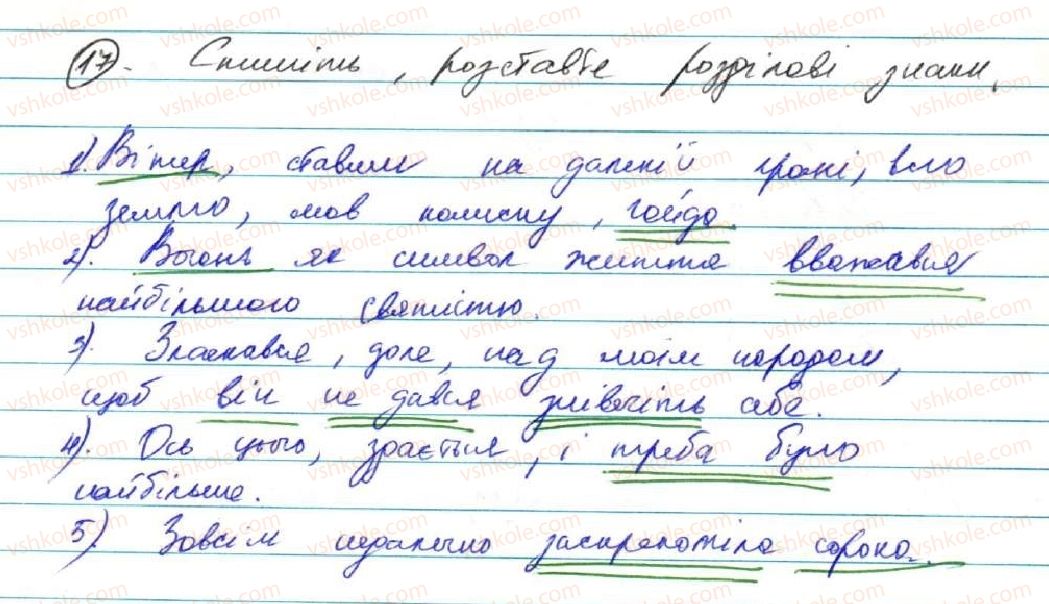 17. Спишіть, розставте розділові знаки.
1). Вітер, ставши на далекій грані, всю
землю, мов колиску, гойда.
2). Вогонь як символ життя вважався
найбільшою святістю.
3). Зласкався, доле, над моїм народом,
щоб він не дався знівечіть себе.
4). Ось цього, здається, і треба було
найбільше.
5) Зовсім недалечко заскреготіла сорока.